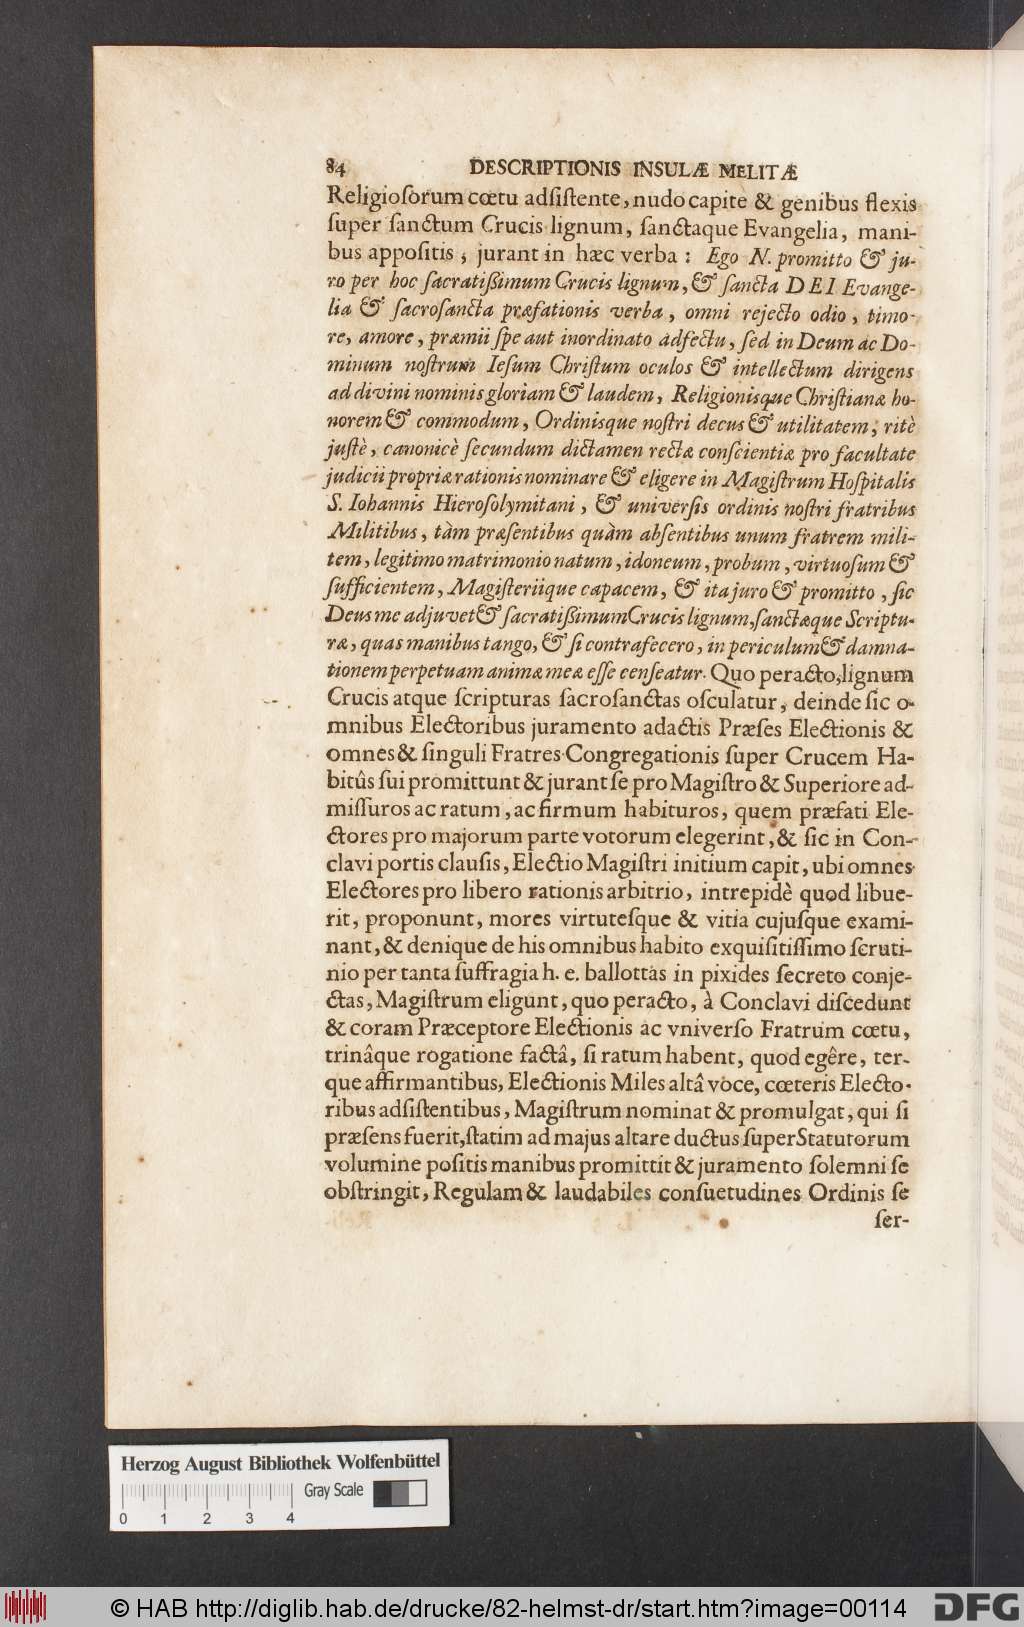 84 DESCRIPTIONIS INSULÆ MELITÆ
Religioſorum cœtu adſiſtente, nudo capite & genibus flexis
ſuper ſanctum Crucis lignum, ſanctaque Evangelia, mani-
bus appoſitis, jurant in hæc verba: Ego N. promitto & ju-
ro per hoc ſacratißimum Crucis lignum, & ſancta DEI Evange-
lia & ſacroſancta præfationis verba, omni rejecto odio, timo-
re, amore, præmii ſpe aut inordinato adfectu, ſed in Deum ac Do-
minum noſtrum Ieſum Chriſtum oculos & intellectum dirigens
ad divini nominis gloriam & laudem, Religionisque Chriſtianæ ho-
norem & commodum, Ordinisque noſtri decus & utilitatem, ritè
juſtè, canonicè ſecundum dictamen rectæ conſcientiæ pro facultate
judicii propriæ rationis nominare & eligere in Magiſtrum Hoſpitalis
S. Iohannis Hieroſolymitani, & univerſis ordinis noſtri fratribus
Militibus, tàm præſentibus quàm abſentibus unum fratrem mili-
tem, legitimo matrimonio natum, idoneum, probum, virtuoſum &
ſufficientem, Magiſteriique capacem, & ita juro & promitto, ſic
Deus me adjuvet & ſacratißimum Crucis lignum, ſanctæque Scriptu-
ræ, quas manibus tango, & ſi contrafecero, in periculum & damna-
tionem perpetuam animæ meæ eſſe cenſeatur. Quo peracto, lignum
Crucis atque ſcripturas ſacroſanctas oſculatur, deinde ſic o-
mnibus Electoribus juramento adactis Præſes Electionis &
omnes & ſinguli Fratres Congregationis ſuper Crucem Ha-
bitûs ſui promittunt & jurant ſe pro Magiſtro & Superiore ad-
miſſuros ac ratum, ac firmum habituros, quem præfati Ele-
ctores pro majorum parte votorum elegerint, & ſic in Con-
clavi portis clauſis, Electio Magiſtri initium capit, ubi omnes
Electores pro libero rationis arbitrio, intrepidè quod libue-
rit, proponunt, mores virtuteſque & vitia cujuſque exami-
nant, & denique de his omnibus habito exquiſitiſſimo ſcruti-
nio per tanta ſuffragia h. e. ballottas in pixides ſecreto conje-
ctas, Magiſtrum eligunt, quo peracto, à Conclavi diſcedunt
& coram Præceptore Electionis ac vniverſo Fratrum cœtu,
trinâque rogatione factâ, ſi ratum habent, quod egêre, ter-
que affirmantibus, Electionis Miles altâ voce, cœteris Electo-
ribus adſiſtentibus, Magiſtrum nominat & promulgat, qui ſi
præſens fuerit, ſtatim ad majus altare ductus ſuper Statutorum
volumine poſitis manibus promittit & juramento ſolemni ſe
obſtringit, Regulam & laudabiles conſuetudines Ordinis ſe
ſer-
Herzog August Bibliothek Wolfenbüttel
Gray Scale
0 1 2 3 4
© HAB http://diglib.hab.de/drucke/82-helmst-dr/start.htm?image=00114
DFG